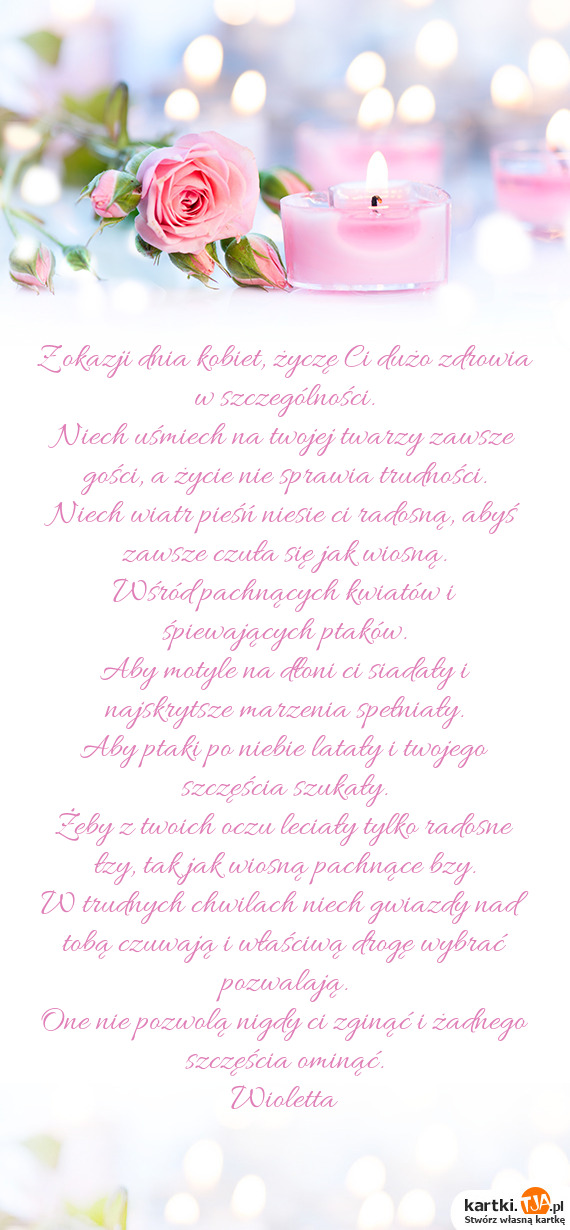 Z okazji dnia kobiet, życzę Ci dużo zdrowia
w szczególności.
Niech uśmiech na twojej twarzy zawsze
gości, a życie nie sprawia trudności.
Niech wiatr pieśń niesie ci radosną, abyś
zawsze czuła się jak wiosną.
Wśród pachnących kwiatów i
śpiewających ptaków.
Aby motyle na dłoni ci siadały i
najskrytsze marzenia spełniały.
Aby ptaki po niebie latały i twojego
szczęścia szukały.
Żeby z twoich oczu leciały tylko radosne
łzy, tak jak wiosną pachnące bzy.
W trudnych chwilach niech gwiazdy nad
tobą czuwają i właściwą drogę wybrać
pozwalają.
One nie pozwolą nigdy ci zginąć i żadnego
szczęścia ominąć.
Wioletta
kartki.TJA.pl
Stwórz własną kartkę